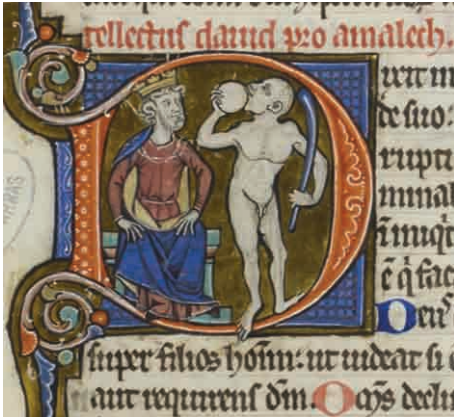 tellectus dauid pro amalech.
Dixit in
de suo:
rupti
minab
ī iniq̇t
ē q̇ fac
Deus
super filios hoīm: ut uideat si
aut requirens dm̄. Om̄s decli